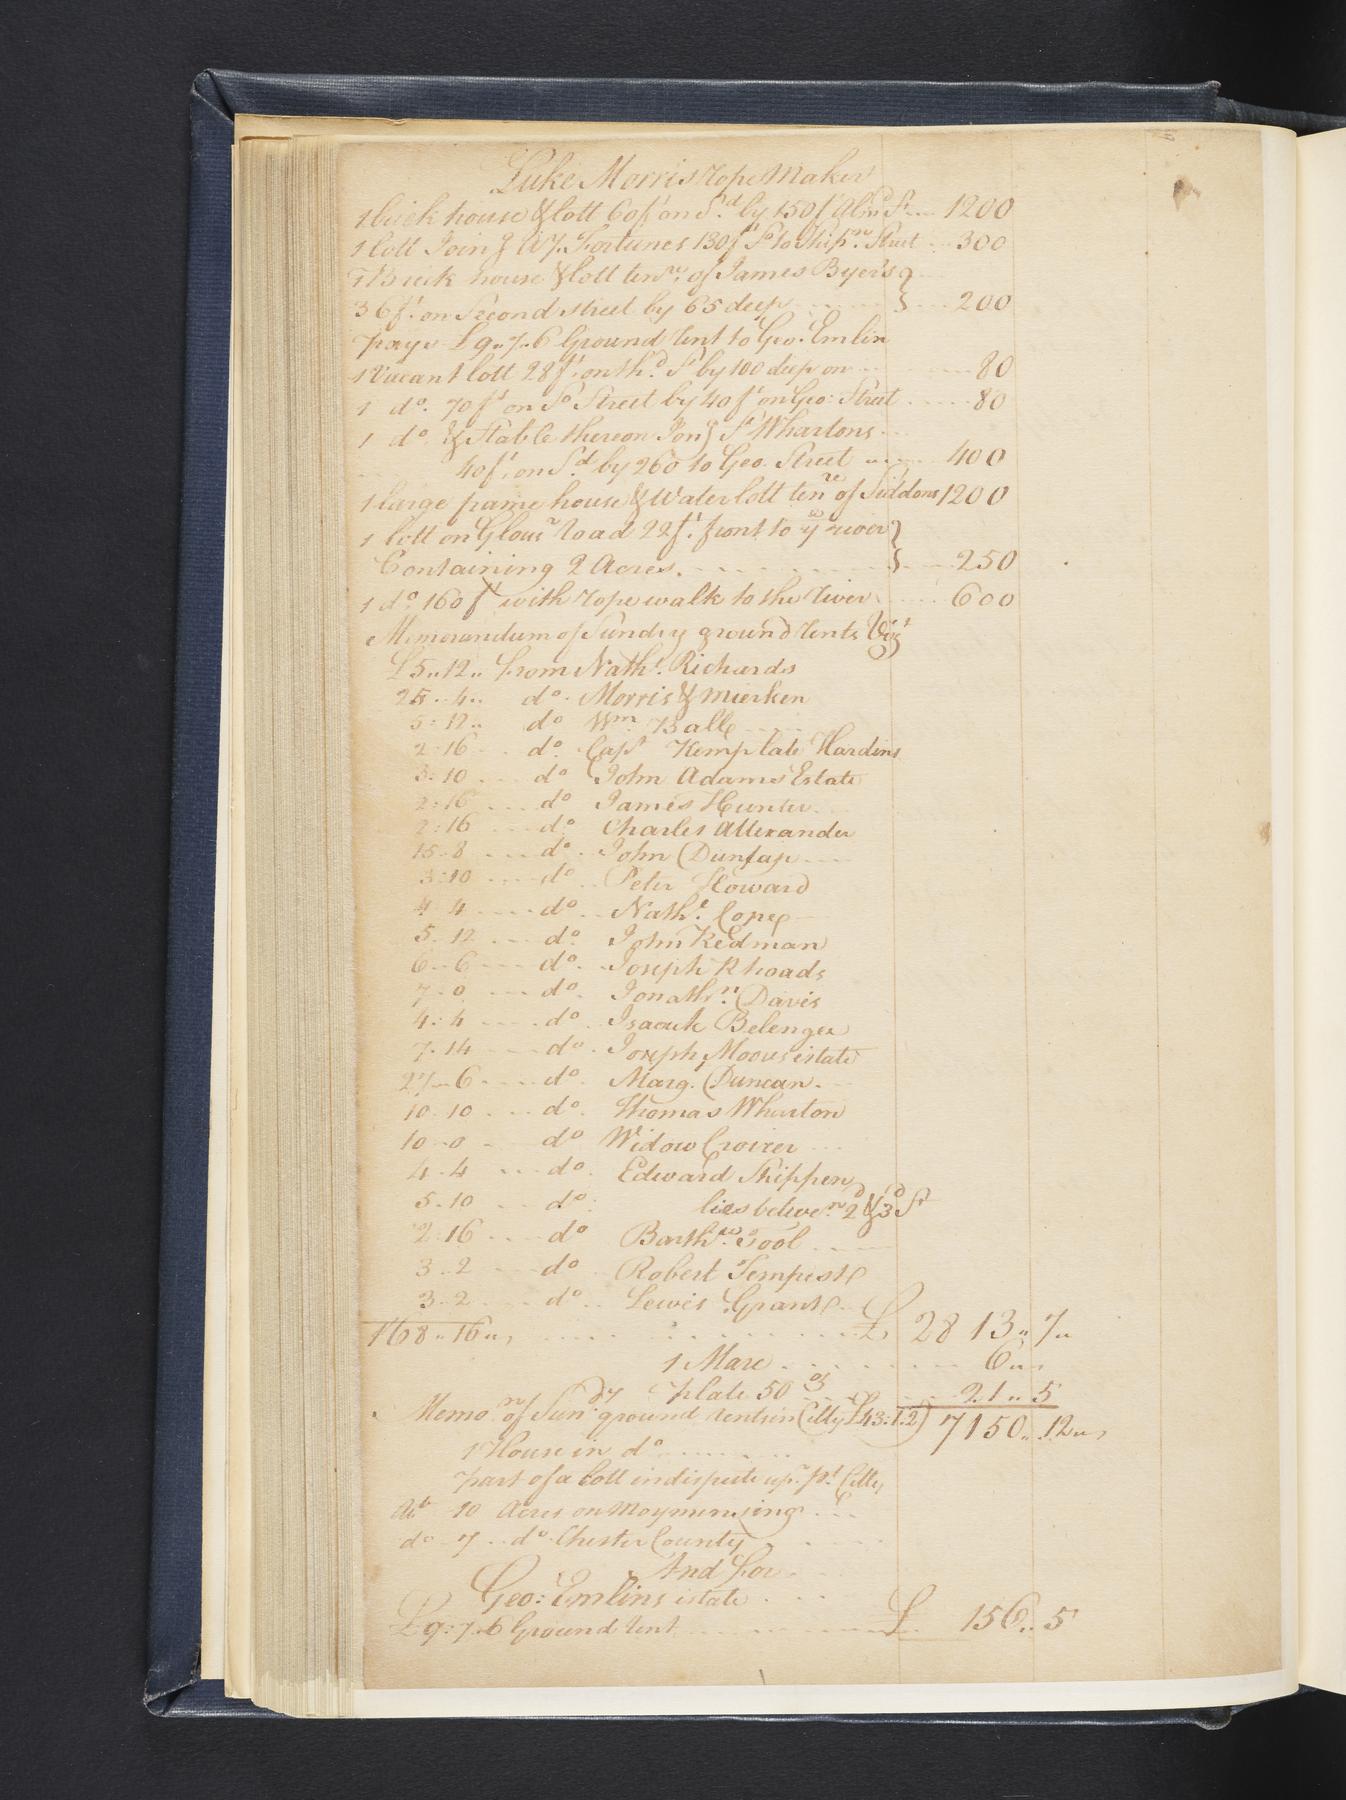 Luke Morris rope Maker
1 brick house & lott 60 ft on Sd by 150 ft St 1200
1 lott Join'g W7. Fortunes 130 ft So to Ship.n Street 300
1 Brick house & lott tenre of James Byers }
36 ft. on Second street by 65 deep } 200
pays £9..7..6 Ground Rent to Geo. Emlin
1 Vacant lott 28 ft. on thd St by 100 deep on 80
1 do. 70 ft on So Street by 40 ft on Geo: Street 80
1 do & Stable thereon Jong St Whartons
40 ft. on Sd by 260 to Geo. Street 400
1 large frame house & Water lott tenre of Siddons 1200
1 lott on Glour road 22 ft. front to ye river }
Containing 2 Acres. } 250
1 do. 160 ft with rope walk to the River 600
Memorandum of Sundry ground Rents Vizt
£5..12.. from Nathl. Richards
25..4.. do. Morris & Mierken
5:12.. do Wm. Ball
2:16 do. Capt Kemp late Hardins
3:10 do John Adams Estate
2:16 do James Hunter
2:16 do. Charles Allexander
15..8 do. John Dunlap
3:10 do Peter Howard
4 4 do Nathl. Cope
5..12 do. John Redman
6..6 do. Joseph Rhoads
7..0 do. Jonathn. Davis
4:4 do Isaouk Belenger
7..14 do. Joseph Moores estate
27..6 do. Marg. Duncan.
10..10 do. Thomas Wharton
10..0 do Widow
4..4 do. Edward Shippen
5..10 do. lies betwe.n 2d & 3d St
2:16 do Barthw. Tool
3..2 do Robert Tempest
3..2 do. Lewis Grant
168..16.. £ 2813..7..
1 Mare 6..
plate 50 oz 21..5
Memo.n of Sundy ground rents in Citty £43.1.2) 7150..12..
1 House in do
part of a lott in dispute upr. pt Citty
Ab 10 Acres on Moymensing
do 7 do Chester County
And for
Geo: Emlins estate
£9:7..6 Ground rent £ 156..5